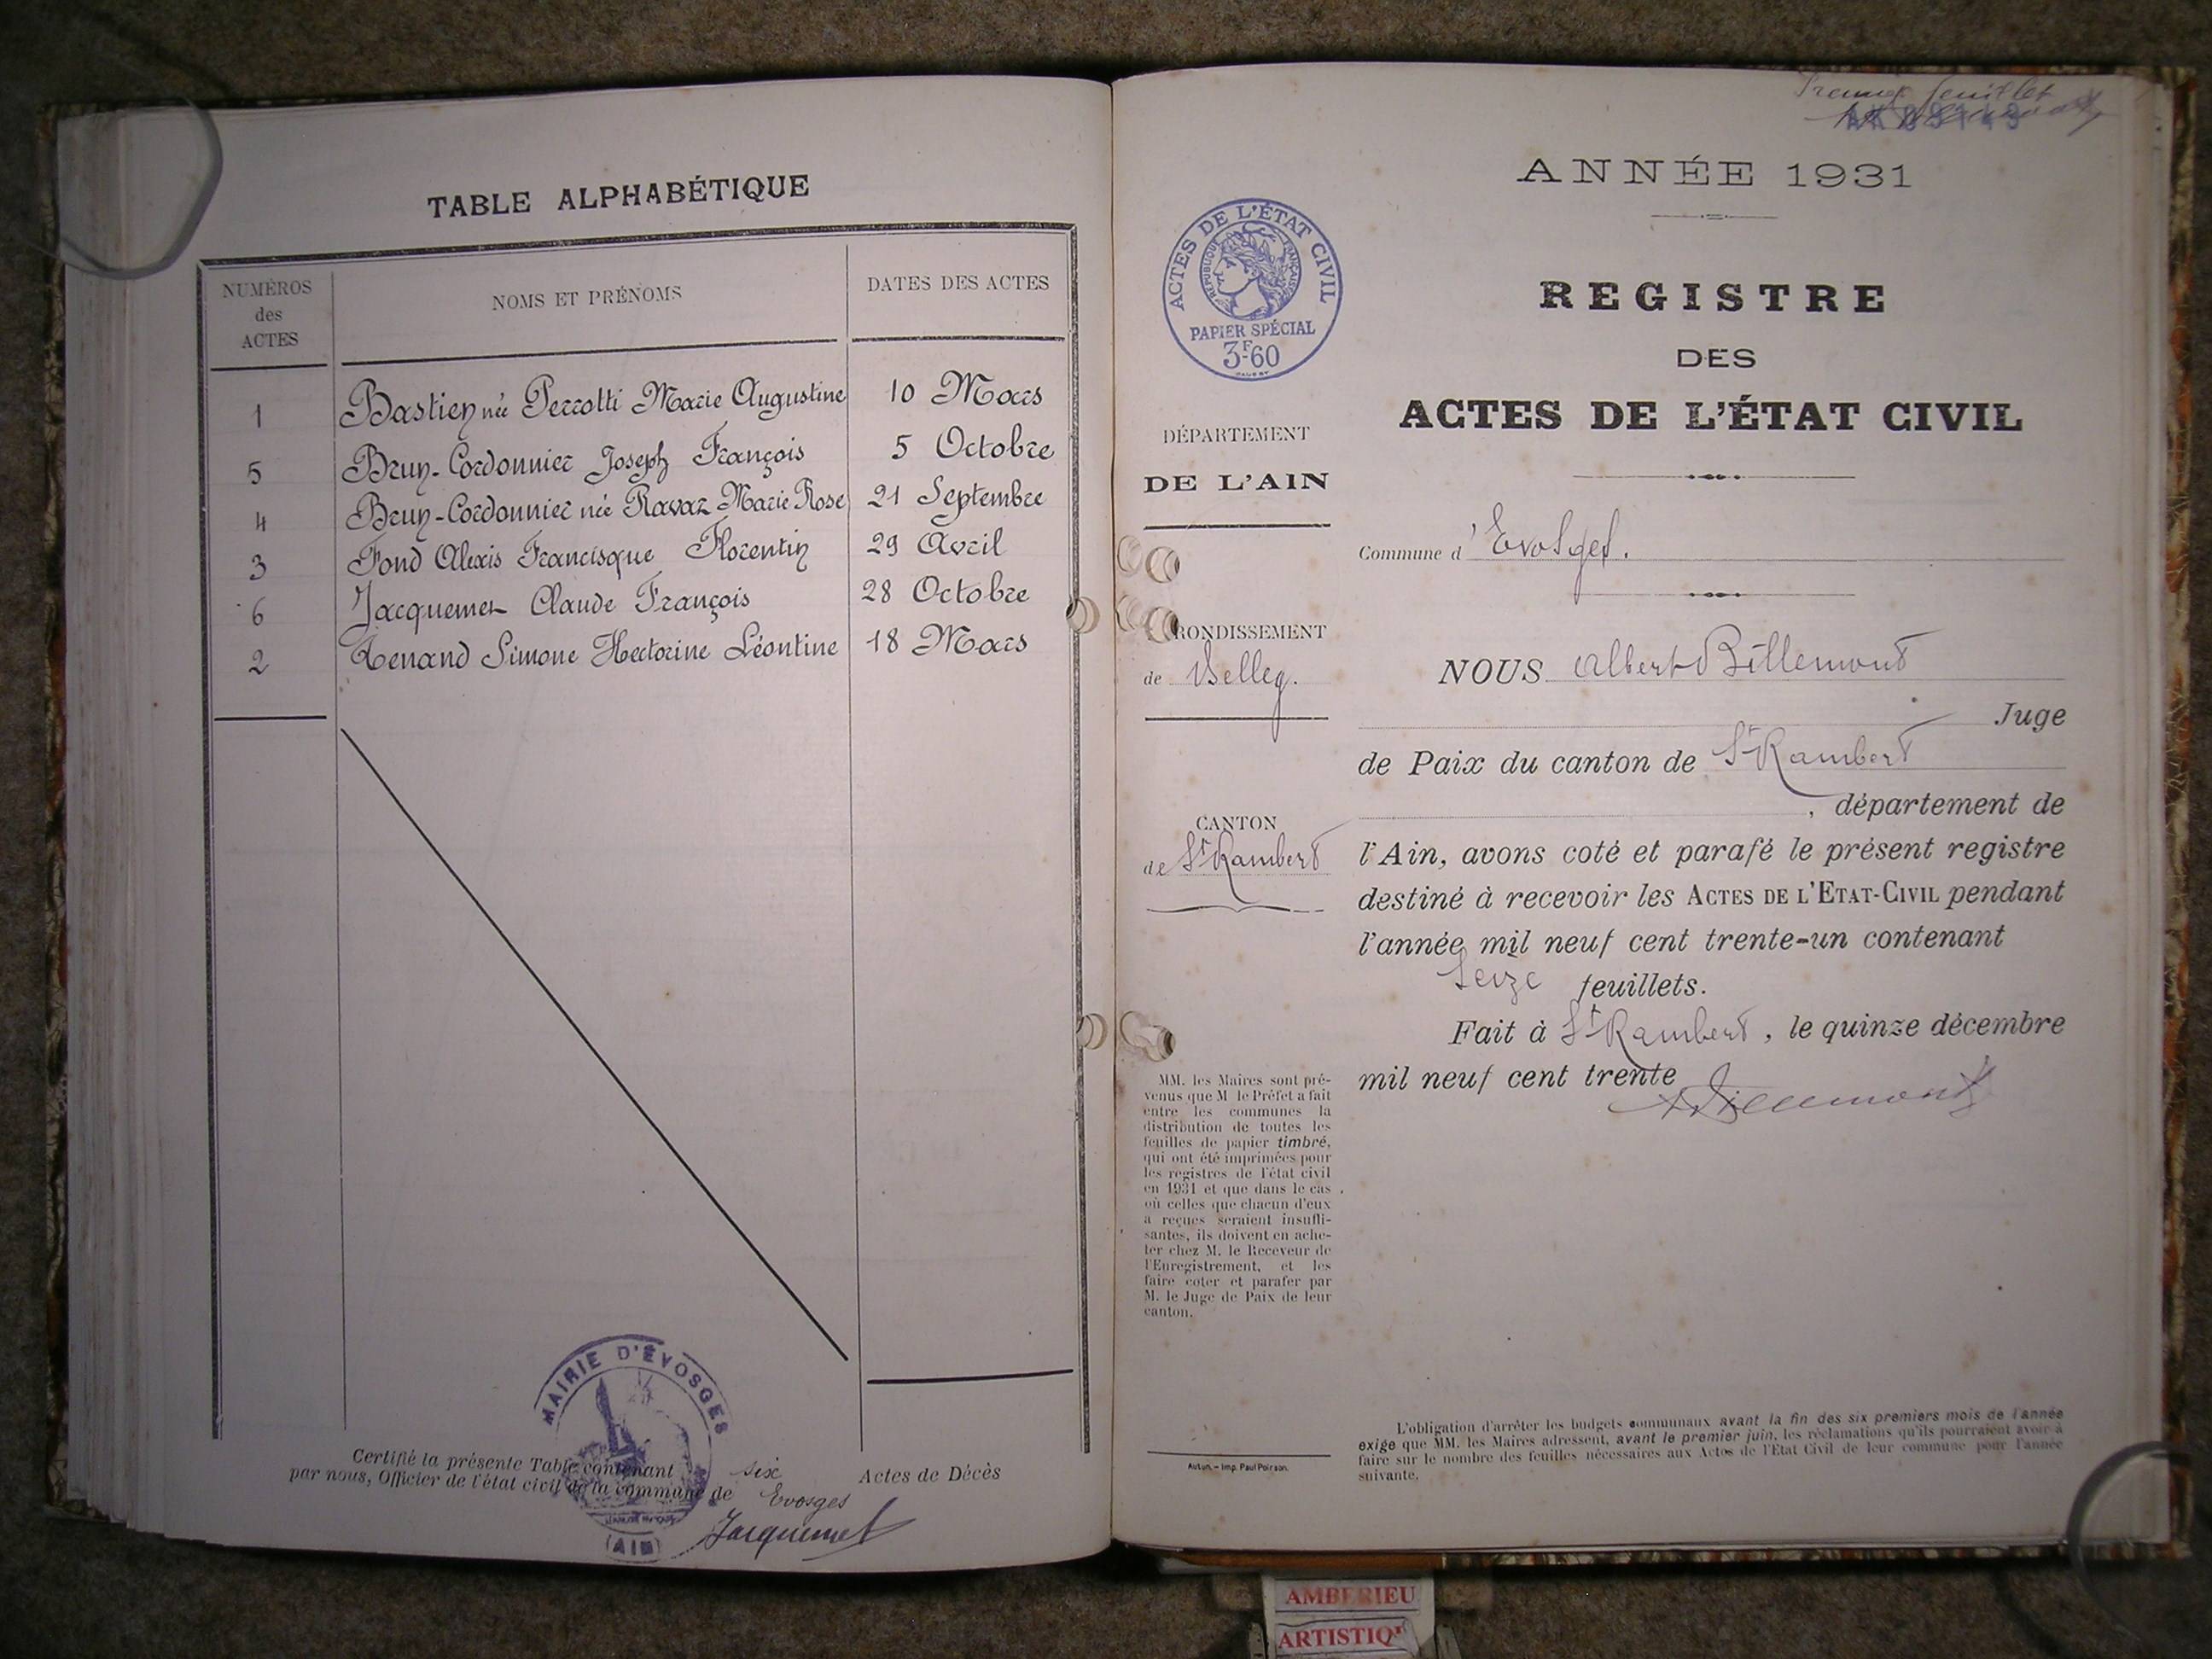 TABLE ALPHABÉTIQUE
NUMÉROS
des
ACTES
NOMS ET PRÉNOMS
DATES DES ACTES
1 Bastien née Perrotti Marie Augustine 10 Mars
5 Brun-Cordonnier Joseph François 5 Octobre
4 Brun-Cordonnier née Ravaz Marie Rose 21 Septembre
3 Fond Alexis Francisque Florentin 29 Avril
6 Jacquemet Claude François 28 Octobre
2 Renand Simone Hectorine Léontine 18 Mars
Certifié la présente Table contenant six Actes de Décès
par nous, Officier de l'état civil de la commune de Evosges
Jacquemet
MAIRIE D'ÉVOSGES
(AIN)
Premier feuillet
ANNÉE 1931
REGISTRE
DES
ACTES DE L'ÉTAT CIVIL
ACTES DE L'ÉTAT CIVIL
RÉPUBLIQUE FRANÇAISE
PAPIER SPÉCIAL
3F.60
DÉPARTEMENT
DE L'AIN
RONDISSEMENT
de Belley.
CANTON
de St Rambert
MM. les Maires sont pré-
venus que M le Préfet a fait
entre les communes la
distribution de toutes les
feuilles de papier timbré,
qui ont été imprimées pour
les registres de l'état civil
en 1931 et que dans le cas
où celles que chacun d'eux
a reçues seraient insuffi-
santes, ils doivent en ache-
ter chez M. le Receveur de
l'Enregistrement, et les
faire coter et parafer par
M. le Juge de Paix de leur
canton.
Autun. – Imp. Paul Poirson.
Commune d'Evosges.
NOUS Albert Billemont
Juge
de Paix du canton de St Rambert
, département de
l'Ain, avons coté et parafé le présent registre
destiné à recevoir les ACTES DE L'ETAT-CIVIL pendant
l'année mil neuf cent trente-un contenant
Seize feuillets.
Fait à St Rambert, le quinze décembre
mil neuf cent trente
ABillemont
L'obligation d'arrêter les budgets communaux avant la fin des six premiers mois de l'année
exige que MM. les Maires adressent, avant le premier juin, les réclamations qu'ils pourraient avoir à
faire sur le nombre des feuilles nécessaires aux Actes de l'Etat Civil de leur commune pour l'année
suivante.
AMBERIEU
ARTISTIQ